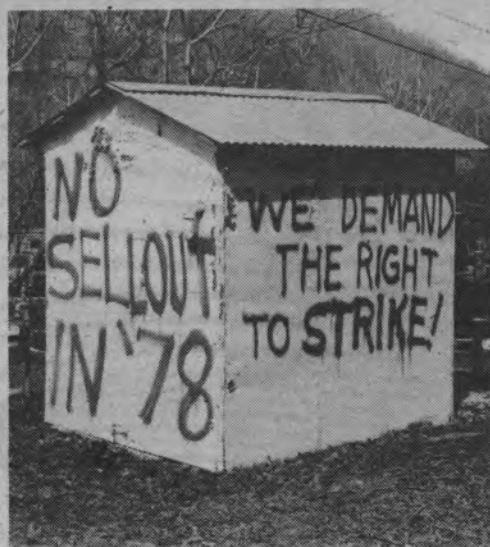 NO
SELLOUT
IN '78
WE DEMAND
THE RIGHT
TO STRIKE!